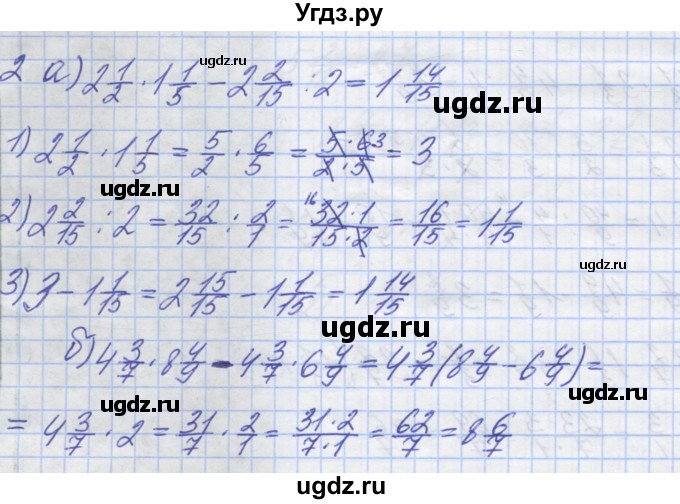 Угдз.ру
2 а) 2 1/2 · 1 1/5 − 2 2/15 : 2 = 1 14/15
ugdz.ru
ugdz.ru
1) 2 1/2 · 1 1/5 = 5/2 · 6/5 = 5·6 3/2·5 = 3
ugdz.ru
ugdz.ru
2) 2 2/15 : 2 = 32/15 : 2/1 = 16 32·1/15·2 = 16/15 = 1 1/15
ugdz.ru
3) 3 − 1 1/15 = 2 15/15 − 1 1/15 = 1 14/15
ugdz.ru
ugdz.ru
б) 4 3/7 · 8 4/9 − 4 3/7 · 6 4/9 = 4 3/7 (8 4/9 − 6 4/9) =
ugdz.ru
ugdz.ru
= 4 3/7 · 2 = 31/7 · 2/1 = 31·2/7·1 = 62/7 = 8 6/7
ugdz.ru
ugdz.ru